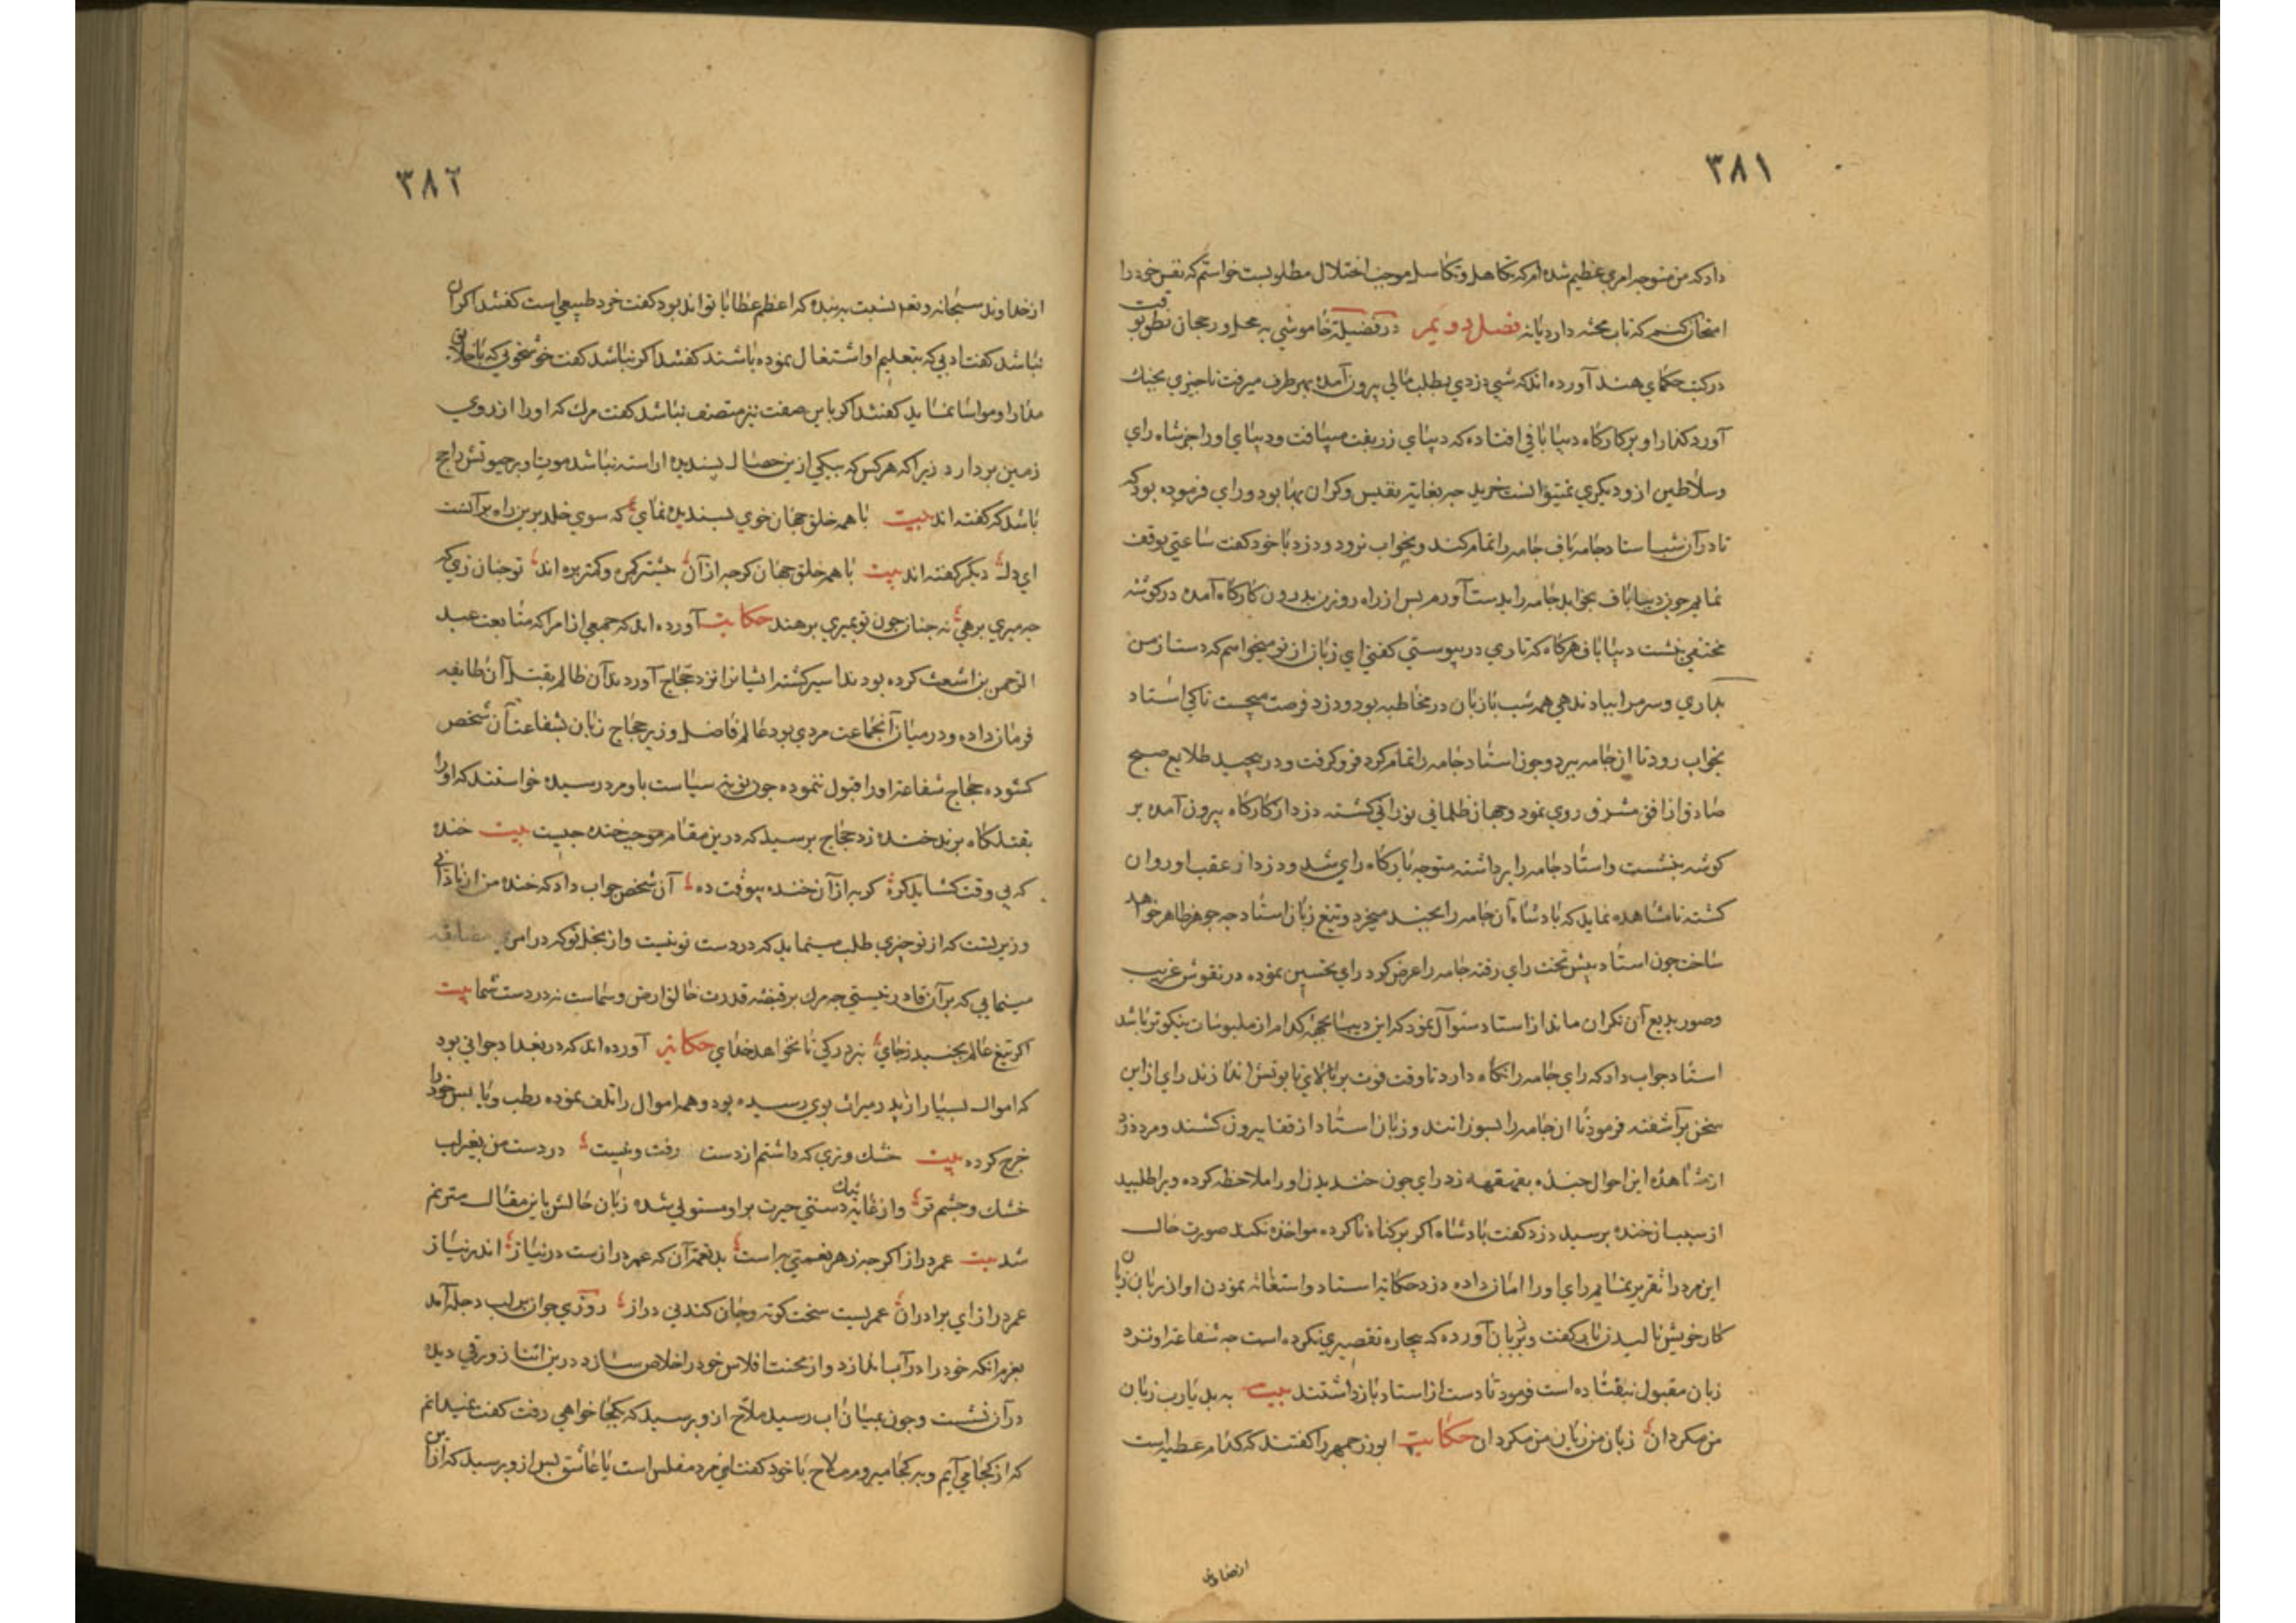 ۳۸۱
داد که من متوجه امری عظیم شده ام که تکاهل و تکاسل موجب اختلال مطلوبست خواستم که نفس خود را
امتحان کنم که تاب محنه دارد یا نه فصل دویم در فضیلة خاموشی به محل و رجحان نطق بوقت
در کتب حکمای هند آورده اند که شبی دزدی بطلب مالی بیرون آمده بهر طرف میرفت تا چیزی بچنک
آورد کذار او بر کارکاه دیبا بافی افتاده که دیبای زربفت میبافت و دیبای او را جز شاه رای
و سلاطین از و دیکری نمیتوانست خرید چه بغایة نفیس و کران بها بود و رای فرموده بود که
تا در آن شب استاد جامه باف جامه را تمام کند و بخواب نرود و دزد با خود کفت ساعتی توقف
نمایم چون دیبا باف بخوابد جامه را بدست آورم بس از راه روزن بدرون کارکاه آمده در کوشه
مختفی بنشست دیبا باف هرکاه که تاری در پیوستی کفتی ای زبان از تو میخواهم که دست از من
بداری و سر مرا بباد ندهی همه شب با زبان در مخاطبه بود و دزد فرصت میجست تا کی استاد
بخواب رود تا آن جامه ببرد و چون استاد جامه را تمام کرد فرو کرفت و در پیچید طلایع صبح
صادق از افق مشرق روی نمود و جهان ظلمانی نورانی کشته دزد از کارکاه بیرون آمده بر
کوشه بنشست و استاد جامه را برداشته متوجه بارکاه رای شد و دزد از عقب او روان
کشته تا مشاهده نماید که بادشاه آن جامه را بچند میخرد و تیغ زبان استاد چه جوهر ظاهر خواهد
ساخت چون استاد بیش تخت رای رفته جامه را عرض کرد رای تحسین نموده در نقوش غریب
و صور بدیع آن نکران ماند از استاد سئوال نمود که این دیبا بجهة کدام از ملبوسات نیکوتر باشد
استاد جواب داد که رای جامه را نکاه دارد تا وقت فوت بر بالای تابوتش اندازند رای از این
سخن برآشفته فرمود تا آن جامه را بسوزانند و زبان استاد از قفا بیرون کشند و مرد دزد
از مشاهده این احوال خنده بقهقهه زد رای چون خندیدن او را ملاحظه کرده ویرا طلبید
از سبب آن خنده برسید دزد کفت بادشاه اکر بر کناه ناکرده مواخذه نکند صورت حال
این مرد را تقریر نمایم رای او را امان داده دزد حکایة استاد و استغاثه نمودن او از زبان
کار خویش نالید زبان کفت و بزبان آورده که بیچاره تقصیری نکرده است چه شفاعة او نزد
زبان مقبول نیفتاده است فرمود تا دست از استاد بازداشتند بیت به بد یا رب زبان
من مکردان زبان من زیان من مکردان حکایت ابوزرجمهر را کفتند که کدام عطیه است
۳۸۲
از خداوند سبحانه و تعم نسبت به بنده که اعظم عطایا تواند بود کفت خرد طبیعی است کفتند اکر آن
نباشد کفت ادبی که بتعلیم او اشتغال نموده باشند کفتند اکر نباشد کفت خوشخوئی که با خلایق
مدارا و مواسا نماید کفتند اکر باین صفت نیز متصف نباشد کفت مرك که او را از روی
زمین بردارد زیرا که هرکس که بیکی از ین خصال پسندیده آراسته نباشد موت او بر حیوتش راجح
باشد که کفته اند بیت با همه خلق جهان خوی پسندیده نمای که سوی خلد برین راه برآنست
ای دل دیکر کفته اند بیت با همه خلق جهان کرچه از آن بیشتر کمره و کمتر بره اند تو چنان زی که
چه میری برهی نه چنان چون تو بمیری برهند حکایت آورده اند که جمعی از امرا که متابعت عبد
الرحمن بن اشعث کرده بودند اسیر کشته ایشانرا نزد حجاج آوردند آن ظالم بقتل آن طایفه
فرمان داده و در میان آنجماعت مردی بود عالم فاضل وزیر حجاج زبان بشفاعت آن شخص
کشوده حجاج شفاعة او را قبول ننموده چون نوبة سیاست باو مرد رسیده خواستند که او را
بقتلکاه برند خنده زد حجاج برسید که در ین مقام موجب خنده چیست بیت خنده
که بی وقت کشاید کره کریه از آن خنده بیوقت ده آن شخص جواب داد که خنده من از نادانی
وزیرتست که از تو چیزی طلب مینماید که در دست تو نیست و از بخل تو که در امری مضایقه
مینمایی که بر آن قادر نیستی چه مرك بر قبضه قدرت خالق ارض و سماست نه در دست شما بیت
اکر تیغ عالم بجنبد زجای نبرد رکی تا نخواهد خدای حکایة آورده اند که در بغداد جوانی بود
که اموال بسیار از پدر میراث بوی رسیده بود و همه اموال را تلف نموده رطب و یابس خود را
خرج کرده بیت خشك و تری که داشتم از دست رفت و نیست در دست من بغیر لب
خشك و چشم تر و از غایة تنك دستی حیرت بر او مستولی شده زبان حالش باین مقال مترنم
شد بیت عمر دراز اکرچه ز هر نعمتی به است بد نعمة آن که عمر درازست در نیاز اندر نیاز
عمر دراز ای برادران عمریست سخت کوته و جان کندنی دراز روزی جوان بر لب دجله آمد
بعزم آنکه خود را در آب اندازد و از محنت افلاس خود را خلاص سازد در ین اثنا زورقی دیده
در آن نشست و چون بمیان آب رسید ملاح از و برسید که بکجا خواهی رفت کفت نمیدانم
که از کجا می آیم و به کجا میروم ملاح با خود کفت این مرد مفلس است یا عاشق بس از و برسید که از این